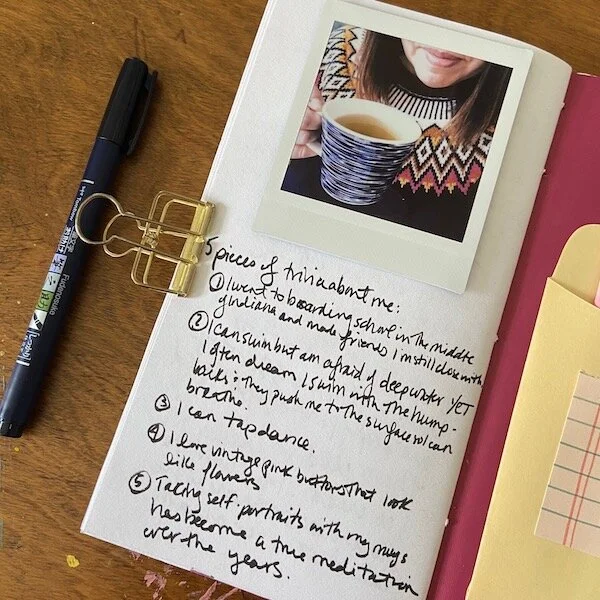 5 pieces of trivia about me:
① I went to boarding school in the middle
of Indiana and made friends I'm still close with
② I can swim but am afraid of deep water YET
I often dream I swim with the hump-
backs & they push me to the surface so I can
breathe.
③ I can tap dance.
④ I love vintage pink buttons that look
like flowers
⑤ Taking self portraits with my mugs
has become a true meditation
over the years.
Fudenosuke
Tombow